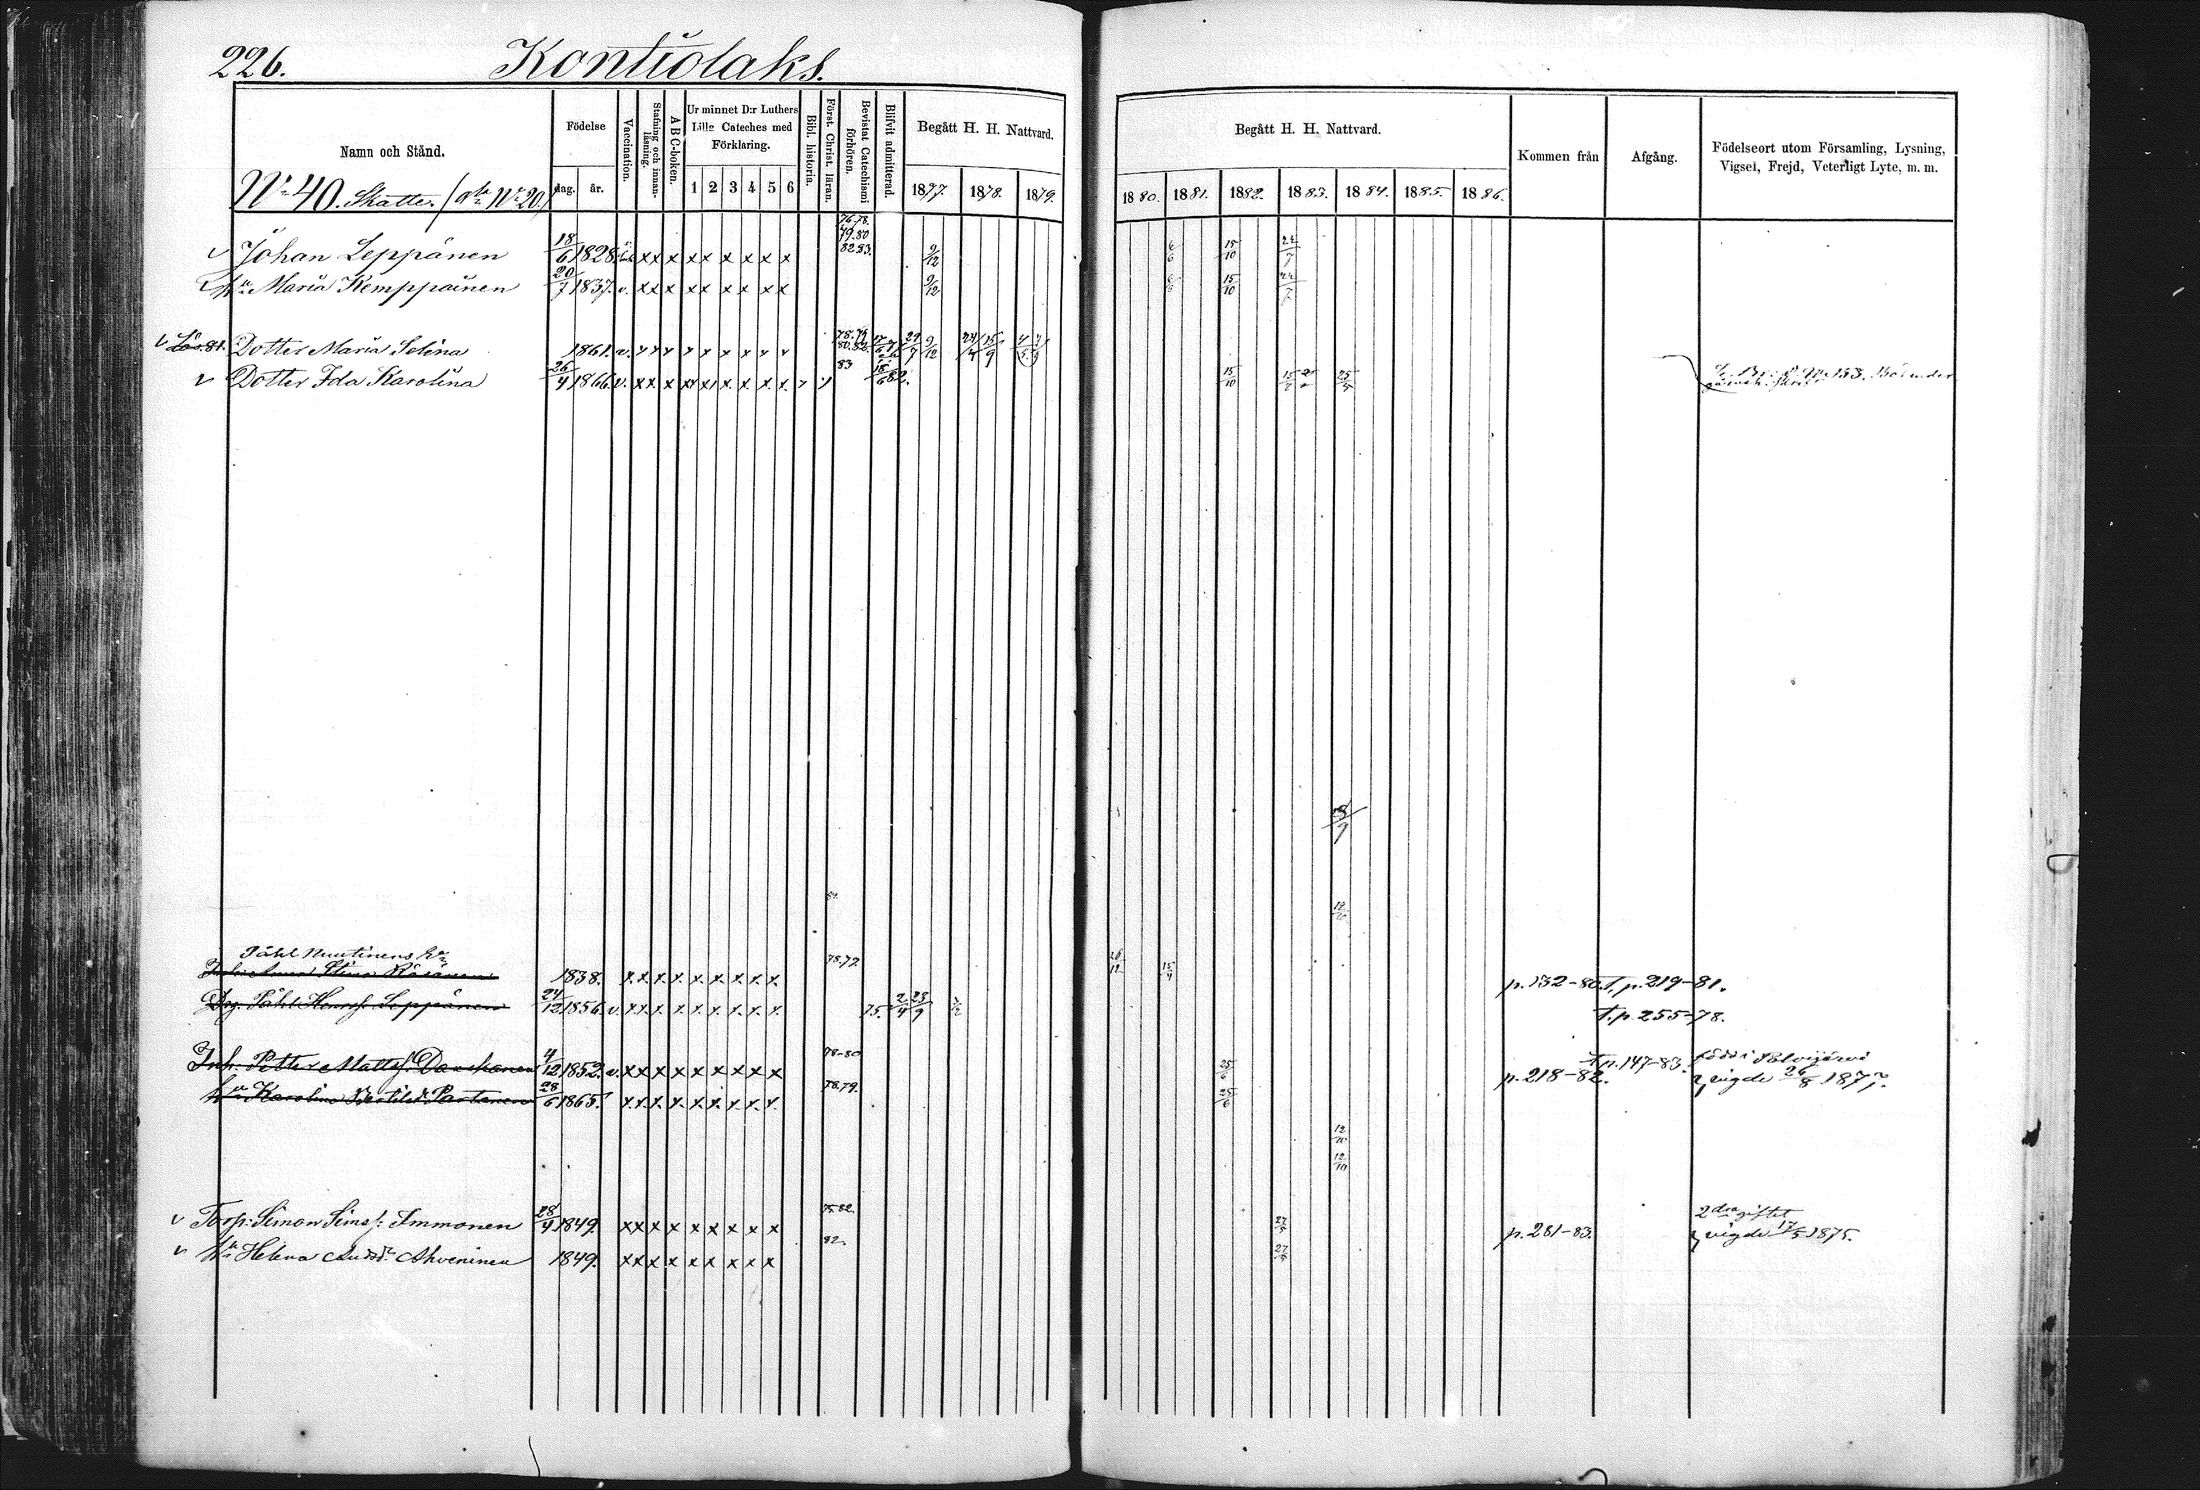 226. Kontiolaks.
Namn och Stånd.
Nr 40. Skatte. (Nr 20.)
Födelse
dag. år.
Vaccination.
Stafning och innanläsning.
A B C-boken.
Ur minnet D:r Luthers Lilla Cateches med Förklaring.
1 2 3 4 5 6
Bibl. historia.
Först. Christ. läran.
Bevistat Catechismi förhören.
Blifvit admitterad.
Begått H. H. Nattvard.
1877. 1878. 1879.
Begått H. H. Nattvard.
1880. 1881. 1882. 1883. 1884. 1885. 1886.
Kommen från
Afgång.
Födelseort utom Församling, Lysning, Vigsel, Frejd, Veterligt Lyte, m. m.
76.78.
79.80
82.83.
v Johan Leppänen 18/6 1828 x x x x x x x x x 9/12 6/6 15/10 22/7
Hu Maria Kemppainen 20/7 1837. v. x x x x x x x x x 9/12 6/6 15/10 22/7
v Dotter Maria Selina 1861. v. 29/7 9/12 15/9
v Dotter Ida Karolina 26/4 1866. v. x x x x x x x x x 83 82. 15/10
9
12
Påhl Nuutinens hu
Inh. Anna Stina Räsänen 1838. x x x x x x x x x 78.79. 15/4 p. 132-80. T. p. 219-81.
Drg. Påhl Henrss. Leppänen 24/12 1856. v. x x x x x x x x x 75. 23/9 T. p. 255-78.
Inh. Petter Mattss. Danskanen 4/12 1852. v. x x x x x x x x x 78-80 25/6 p. 218-82. T. p. 147-83. född i Polvijärvi
Hu Karolina Partanen 28/6 1865. x x x x x x x x x 78.79. 25/6 vigde 26/8 1877.
12/10
12/10
v Torp. Simon Simss. Immonen 28/4 1849. x x x x x x x x x 75.82. p. 281-83. 2dra giftet
vigde 17/5 1875.
v Hu Helena Andersd:r Ahveninen 1849. x x x x x x x x x 82.